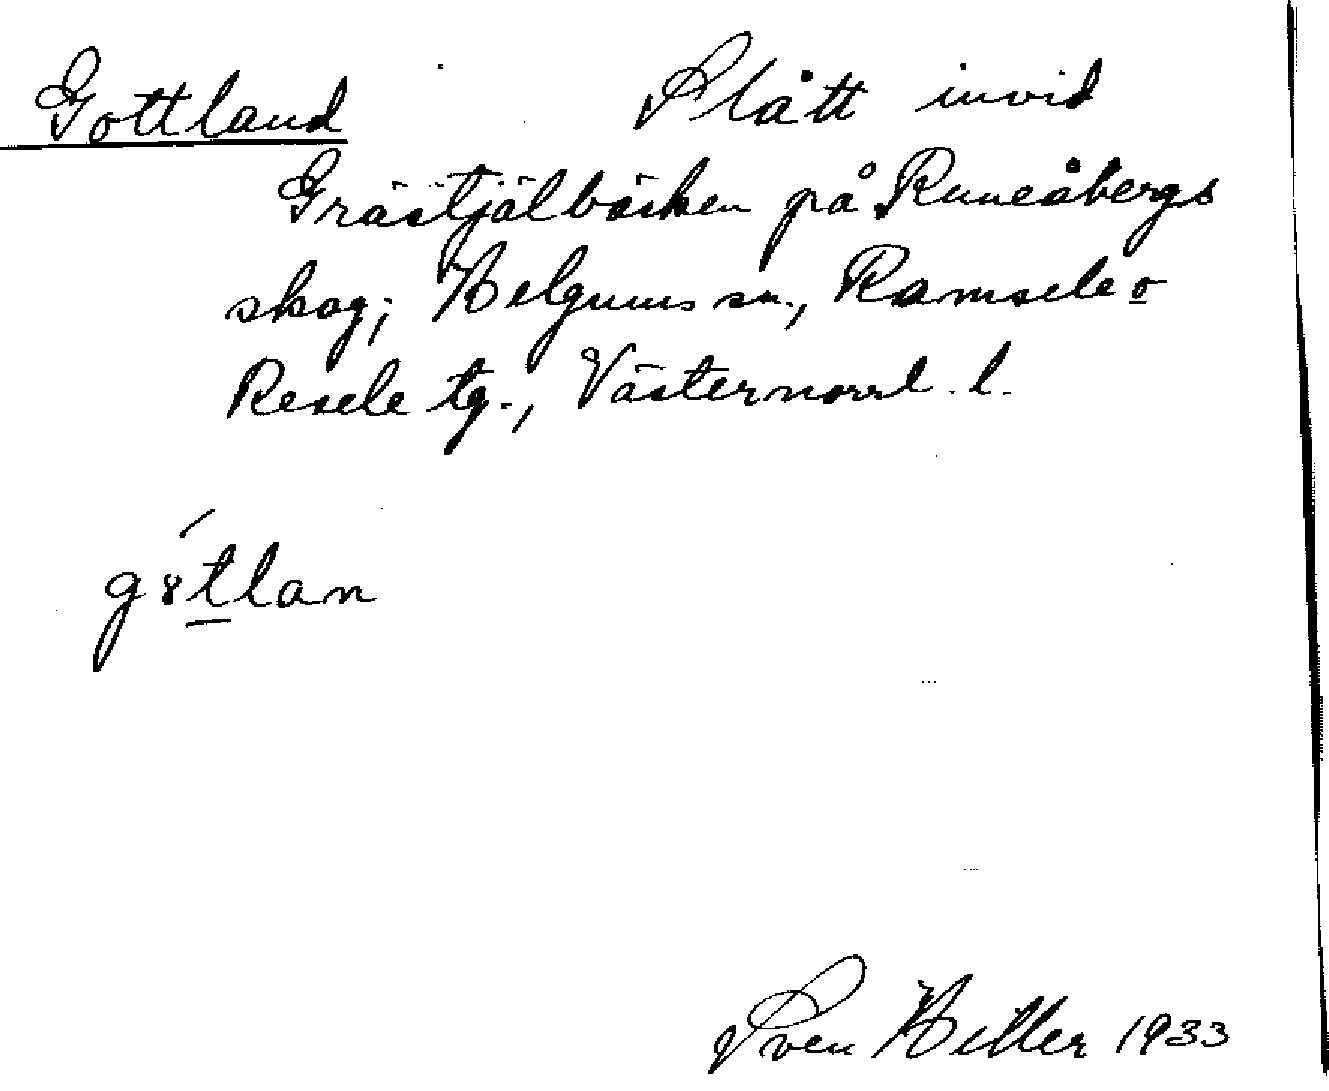 Gottland Slått invid
Grästjälbäcken på Runeåbergs
skog; Helgums sn., Ramsele o
Resele tg., Västernorrl. l.
gȣ́tlan
Sven Hiller 1933